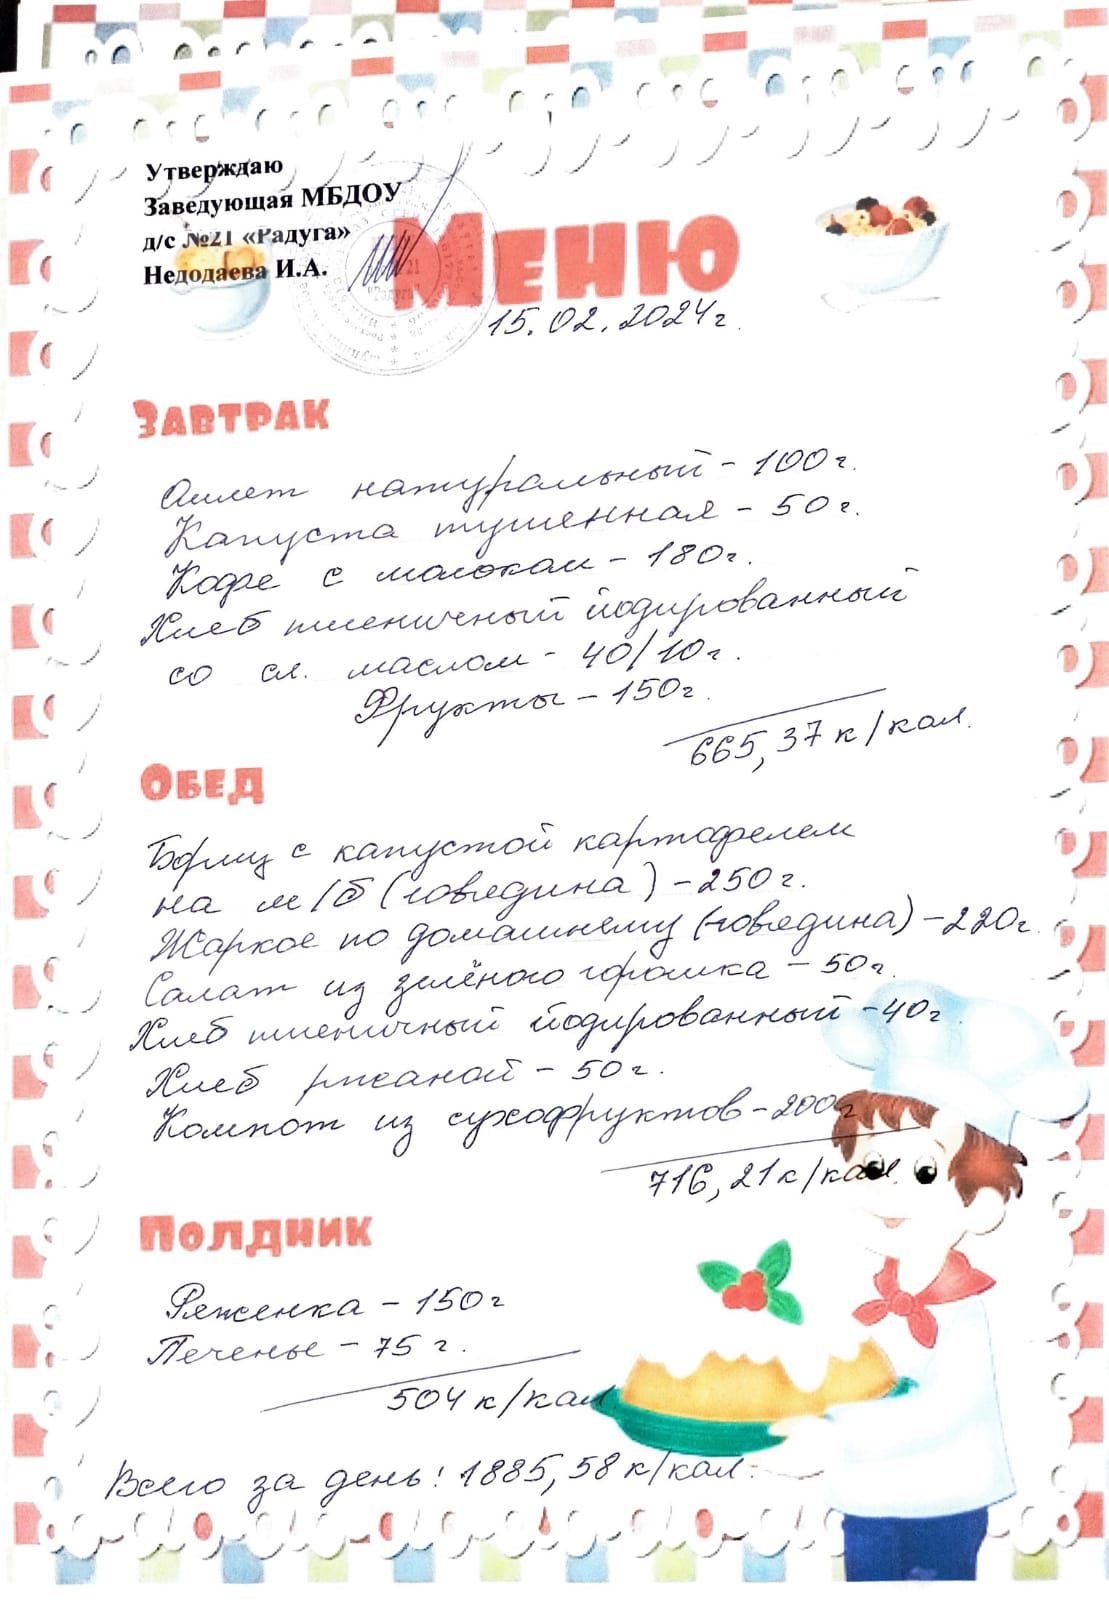 Утверждаю
Заведующая МБДОУ
д/с №21 «Радуга»
Недодаева И.А.
Меню
15.02.2024г.
Завтрак
Омлет натуральный - 100г.
Капуста тушенная - 50г.
Кофе с молоком - 180г.
Хлеб пшеничный йодированный
со сл. маслом - 40/10г.
Фрукты - 150г.
665,37 к/кал.
Обед
Борщ с капустой картофелем
на м/б (говядина) - 250г.
Жаркое по домашнему (говядина) - 220г.
Салат из зелёного горошка - 50г.
Хлеб пшеничный йодированный - 40г.
Хлеб ржаной - 50г.
Компот из сухофруктов - 200г
716,21 к/кал.
Полдник
Ряженка - 150г
Печенье - 75 г.
504 к/кал
Всего за день: 1885,58 к/кал.